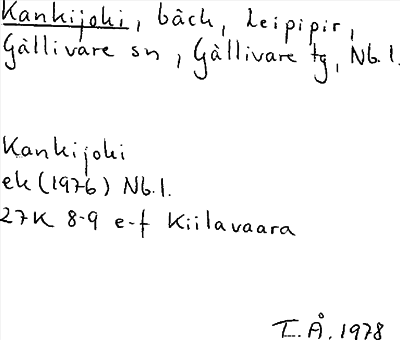 Kankijoki, bäck, Leipipir,
Gällivare sn, Gällivare tg, Nb.l.
Kankijoki
ek (1976) Nb.l.
27K 8-9 e-f Kiilavaara
I.Å. 1978